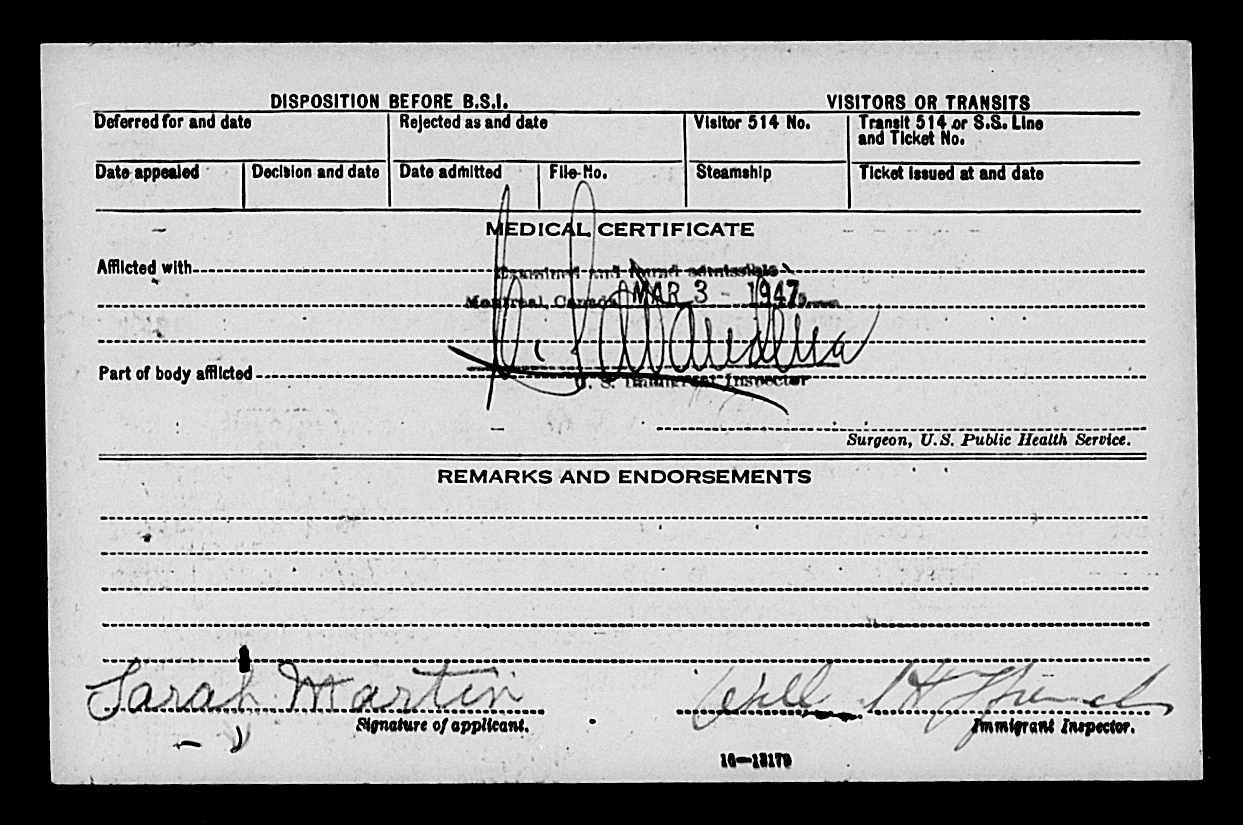 DISPOSITION BEFORE B.S.I. VISITORS OR TRANSITS
Deferred for and date Rejected as and date Visitor 514 No. Transit 514 or S.S. Line
and Ticket No.
Date appealed Decision and date Date admitted File No. Steamship Ticket issued at and date
MEDICAL CERTIFICATE
Afflicted with
Examined and found admissible
Montreal, Canada MAR 3 - 1947
Part of body afflicted
U. S. Immigrant Inspector
Surgeon, U.S. Public Health Service.
REMARKS AND ENDORSEMENTS
Sarah Martin
Signature of applicant. Immigrant Inspector.
16—13179